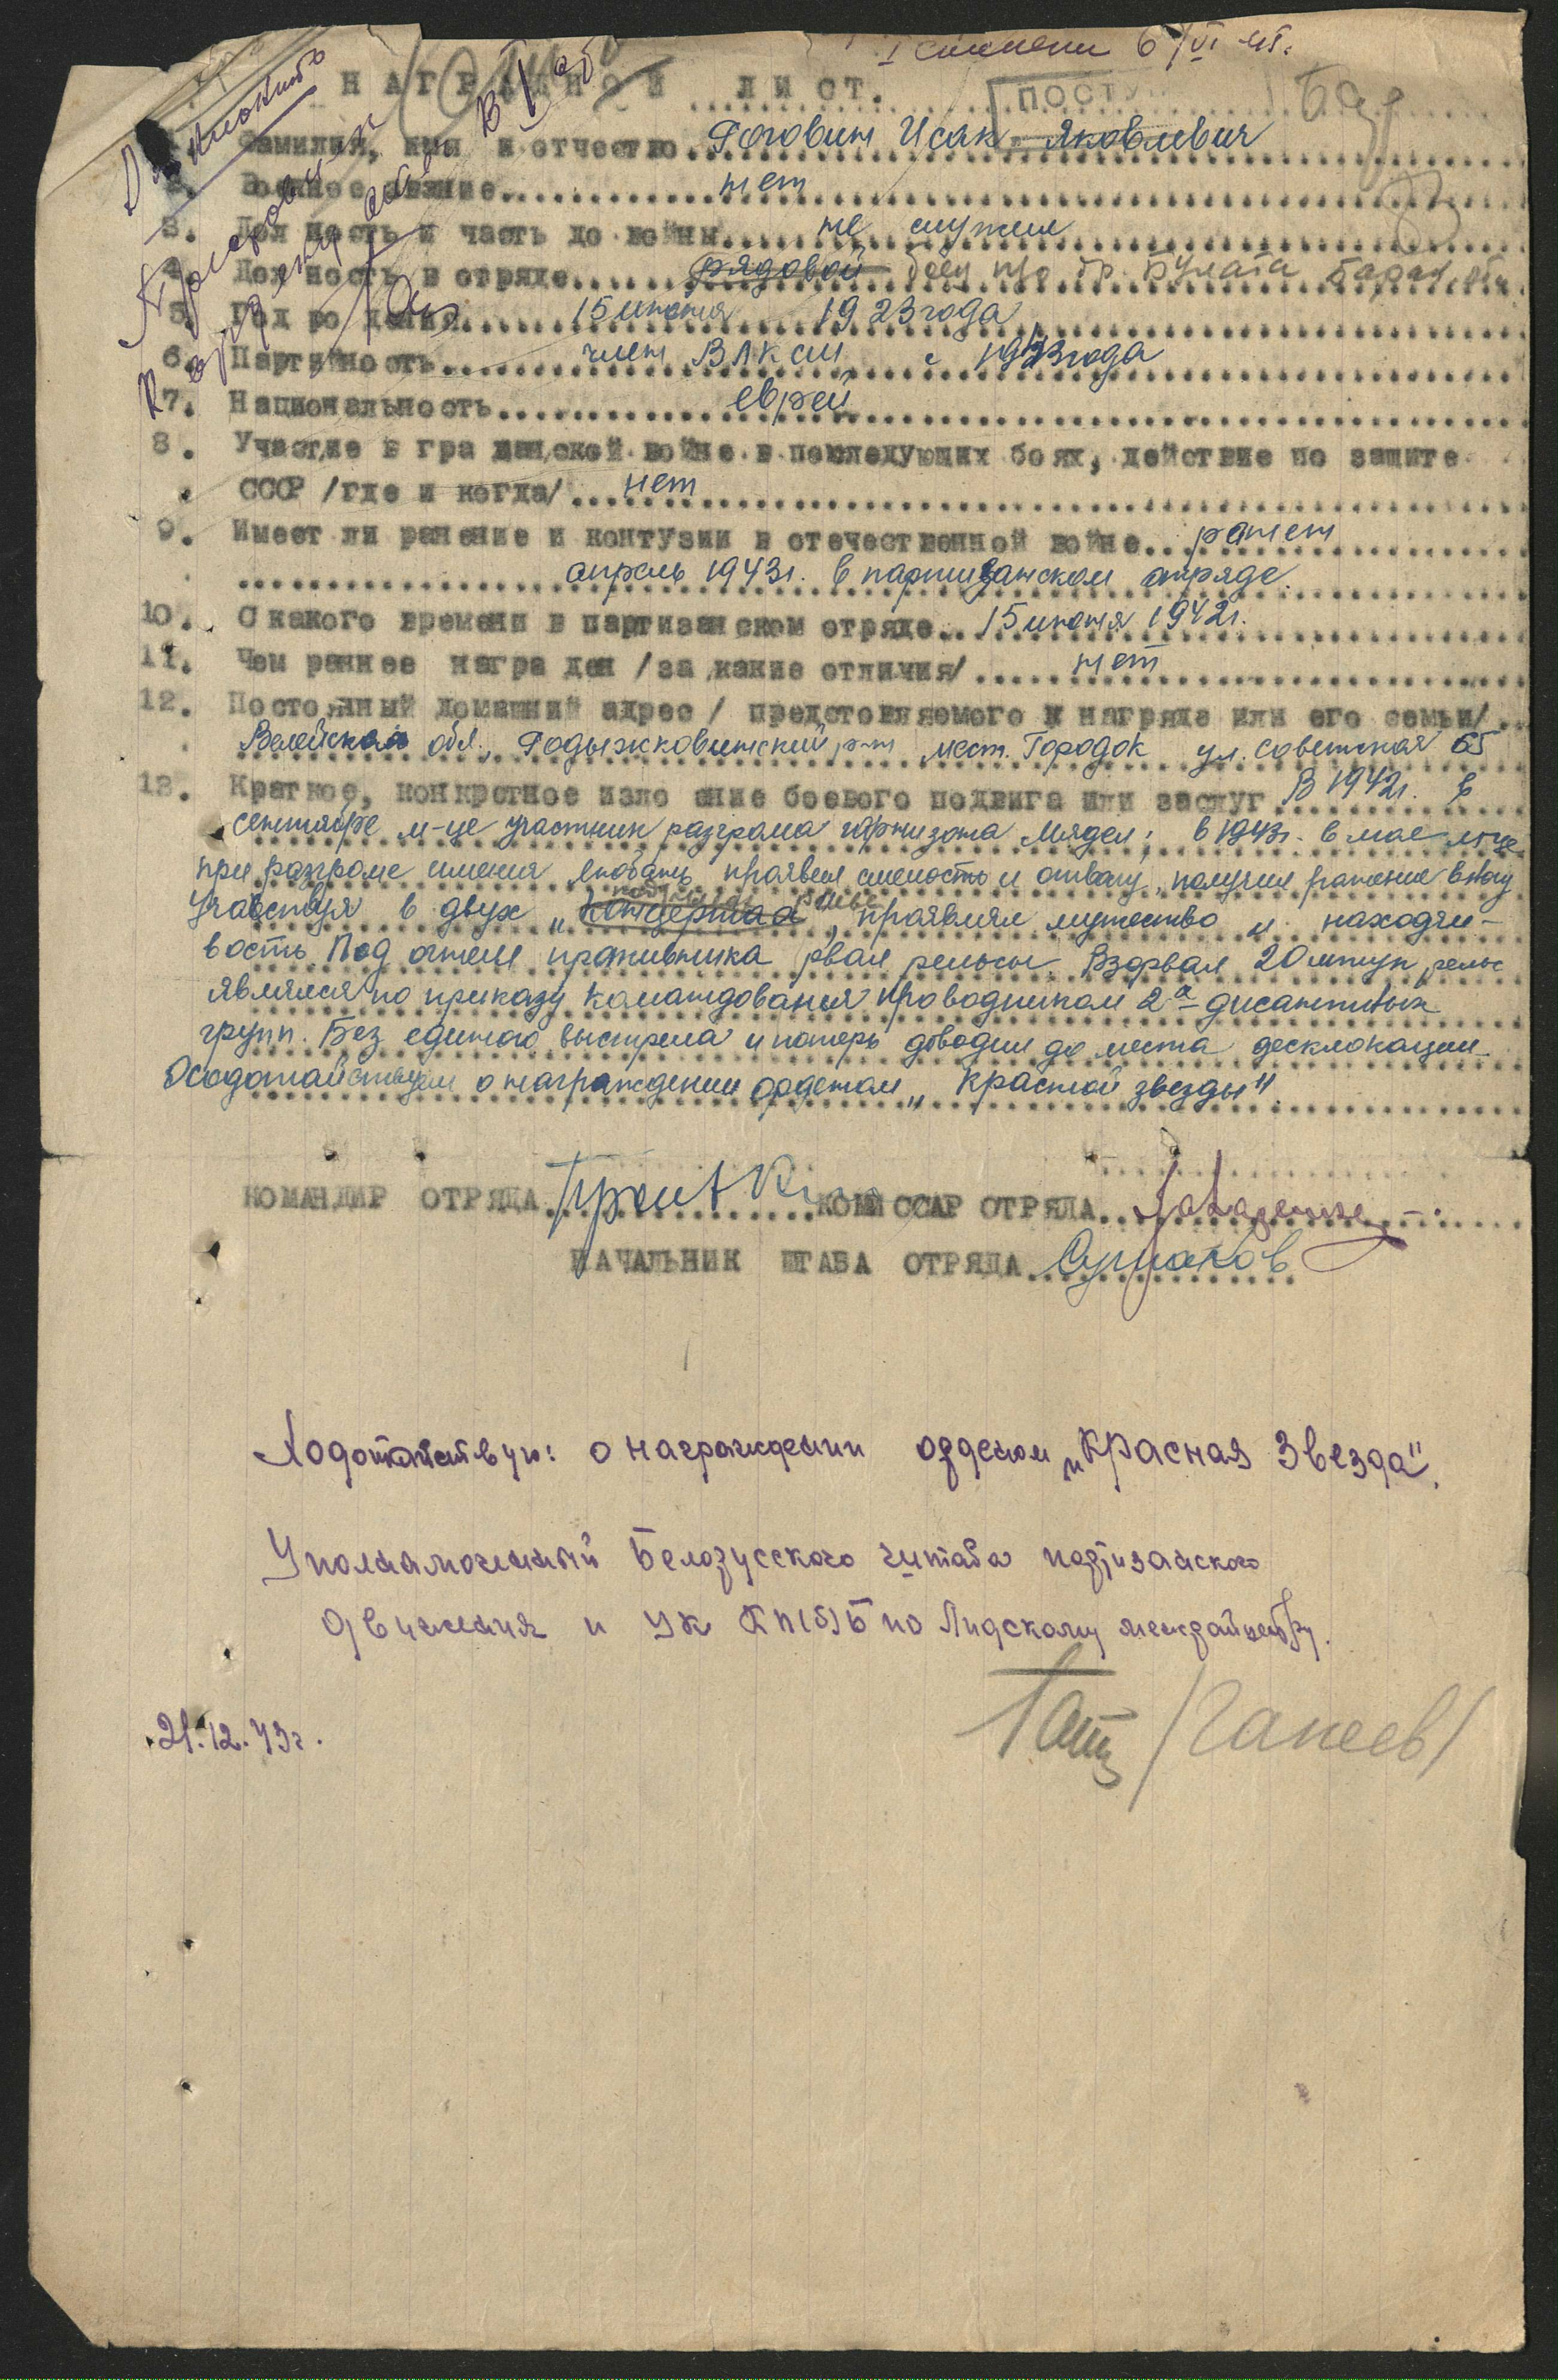 I степени 6/VI 45.
НАГРАДНОЙ ЛИСТ.
ПОСТУ
1. Фамилия, имя и отчество Гоговин Исак Яковлевич
2. Военное звание нет
3. Должность и часть до войны не служил
4. Должность в отряде рядовой боец п/о бр. Булата Баран. обл.
5. Год рождения 15 июня 1923 года
6. Партийность член ВЛКСМ с 1943 года
7. Национальность еврей
8. Участие в гражданской войне в последующих боях, действие по защите
СССР /где и когда/ нет
9. Имеет ли ранение и контузии в отечественной войне ранен
апрель 1943г. в партизанском отряде.
10. С какого времени в партизанском отряде 15 июня 1942г.
11. Чем раннее награжден /за какие отличия/ нет
12. Постоянный домашний адрес / предстовляемого к награде или его семьи/
Велейская обл., Годыжковичский р-н мест. Городок ул. Советская 65
13. Краткое, конкретное изложение боевого подвига или заслуг В 1942г. в
сентябре м-це участник разгрома гарнизона Мядел; в 1943г. в мае м-це
при разгроме имения Любань проявил смелость и отвагу, получил ранение в ногу
подрывах рельс
Участвуя в двух „концертах", проявлял мужество и находчи-
вость. Под огнем противника рвал рельсы. Взорвал 20 штук рельс
являлся по приказу командования проводником 2-х дисантных
групп. Без единого выстрела и потерь доводил до места дисклокации.
Оходотайствуем о награждении орденом „Красной звезды"
КОМАНДИР ОТРЯДА КОМИССАР ОТРЯДА
НАЧАЛЬНИК ШТАБА ОТРЯДА
Ходотайствую: о награждении орденом „Красная Звезда".
Уполнамоченный Белорусского штаба партизанского
движения и ЦК КП(б)Б по Лидскому межрайцентру.
21.12.43г.
/Ганеев/